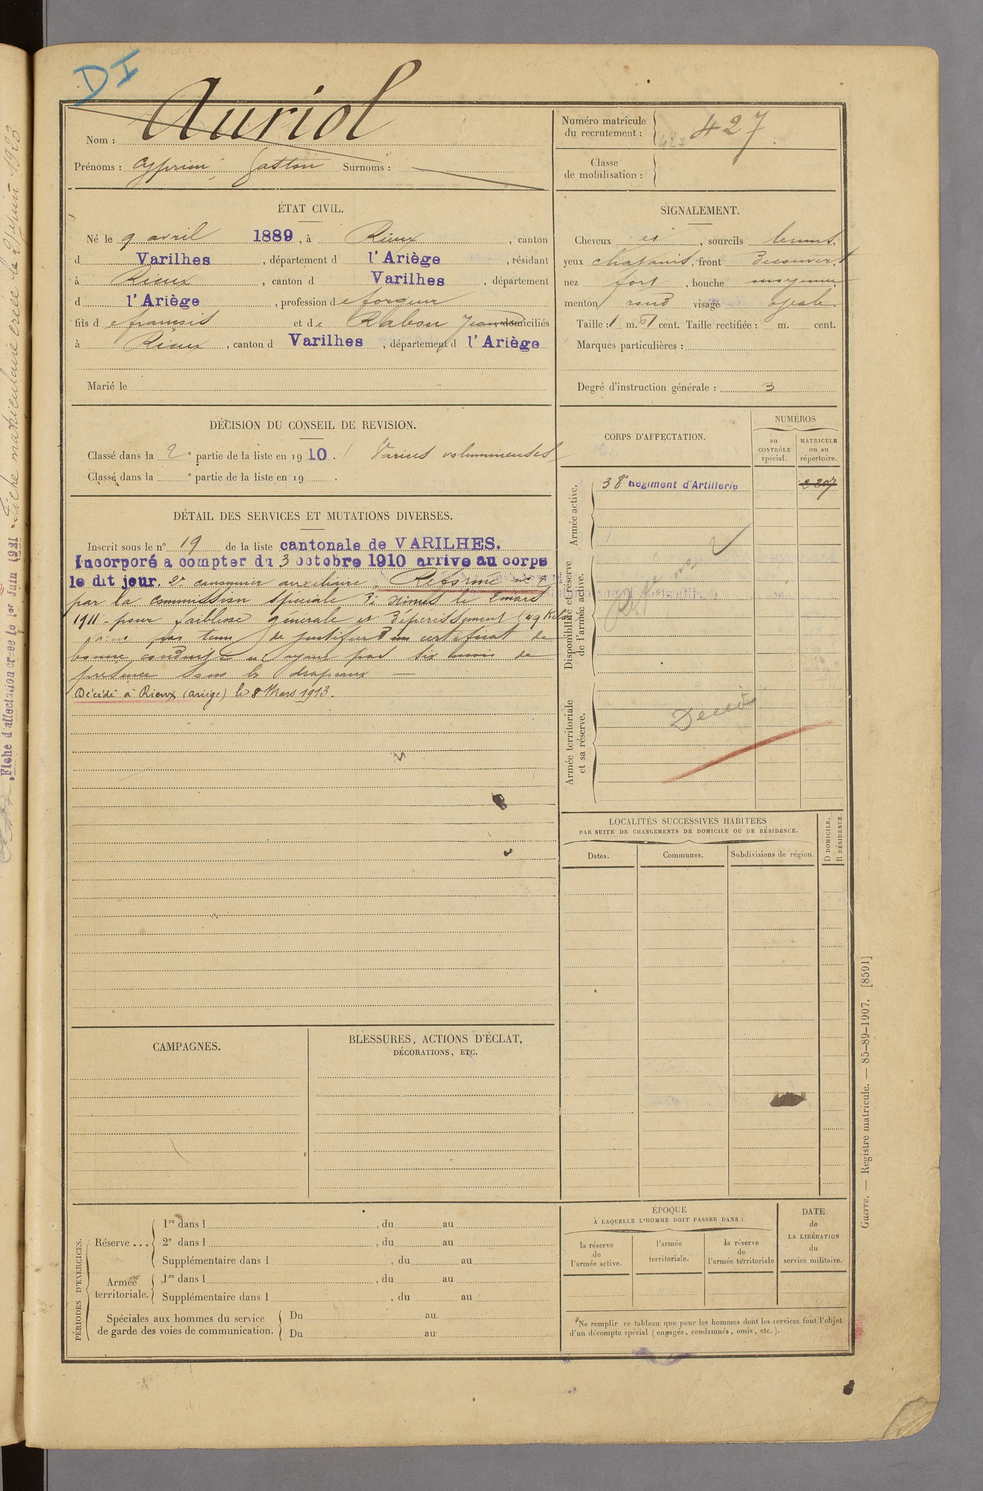 DI
Nom : Auriol
Prénoms : Cyprien, Gaston Surnoms :
Numéro matricule du recrutement : 427 427
Classe de mobilisation :
ÉTAT CIVIL.
Né le 9 avril 1889, à Rieux, canton
d Varilhes, département d l'Ariège, résidant
à Rieux, canton d Varilhes, département
d l'Ariège, profession de forgeur
fils de françois et de Rabou Jeanne domiciliés
à Rieux, canton d Varilhes, département d l'Ariège
Marié le
SIGNALEMENT.
Cheveux et, sourcils bruns,
yeux chatains, front Découvert
nez fort, bouche moyenne
menton rond visage ovale
Taille : 1 m. 61 cent. Taille rectifiée : m. cent.
Marques particulières :
Degré d'instruction générale : 3
DÉCISION DU CONSEIL DE REVISION.
Classé dans la 2e partie de la liste en 1910. Varices volumineuses
Classé dans la e partie de la liste en 19 .
DÉTAIL DES SERVICES ET MUTATIONS DIVERSES.
Inscrit sous le n° 19 de la liste cantonale de VARILHES.
Incorporé à compter du 3 octobre 1910 arrivé au corps
le dit jour. 2e canonnier auxiliaire. Réformé n° 2
par la commission spéciale de Nimes le 2 mars
1911 - pour faiblesse générale et dépérissement (49 Kilos)
pas tenu de justifier d'un certificat de
bonne conduite n'ayant pas six mois de
présence sous les drapeaux —
Décédé à Rieux (Ariège) le 8 Mars 1913.
CORPS D'AFFECTATION.
NUMÉROS
au CONTRÔLE spécial.
MATRICULE ou au répertoire.
Armée active.
38e Régiment d'Artillerie 2207
Disponibilité et réserve de l'armée active.
Réformé
Armée territoriale et sa réserve.
Décédé
LOCALITÉS SUCCESSIVES HABITÉES
PAR SUITE DE CHANGEMENTS DE DOMICILE OU DE RÉSIDENCE.
Dates.
Communes.
Subdivisions de région.
D DOMICILE.
R RÉSIDENCE.
CAMPAGNES.
BLESSURES, ACTIONS D'ÉCLAT,
DÉCORATIONS, ETC.
PÉRIODES D'EXERCICES.
Réserve ...
1re dans l , du au
2e dans l , du au
Supplémentaire dans l , du au
Armée territoriale.
1re dans l , du au
Supplémentaire dans l , du au
Spéciales aux hommes du service
de garde des voies de communication.
Du au
Du au
ÉPOQUE
À LAQUELLE L'HOMME DOIT PASSER DANS :
la réserve de l'armée active.
l'armée territoriale.
la réserve de l'armée territoriale
DATE de LA LIBÉRATION du service militaire.
Ne remplir ce tableau que pour les hommes dont les services font l'objet
d'un décompte spécial (engagés, condamnés, omis, etc.).
Guerre. — Registre matricule. — 85-89-1907. [8591]
Fiche d'affectation créée le 1er Juin 1921
Fiche matriculaire créée le